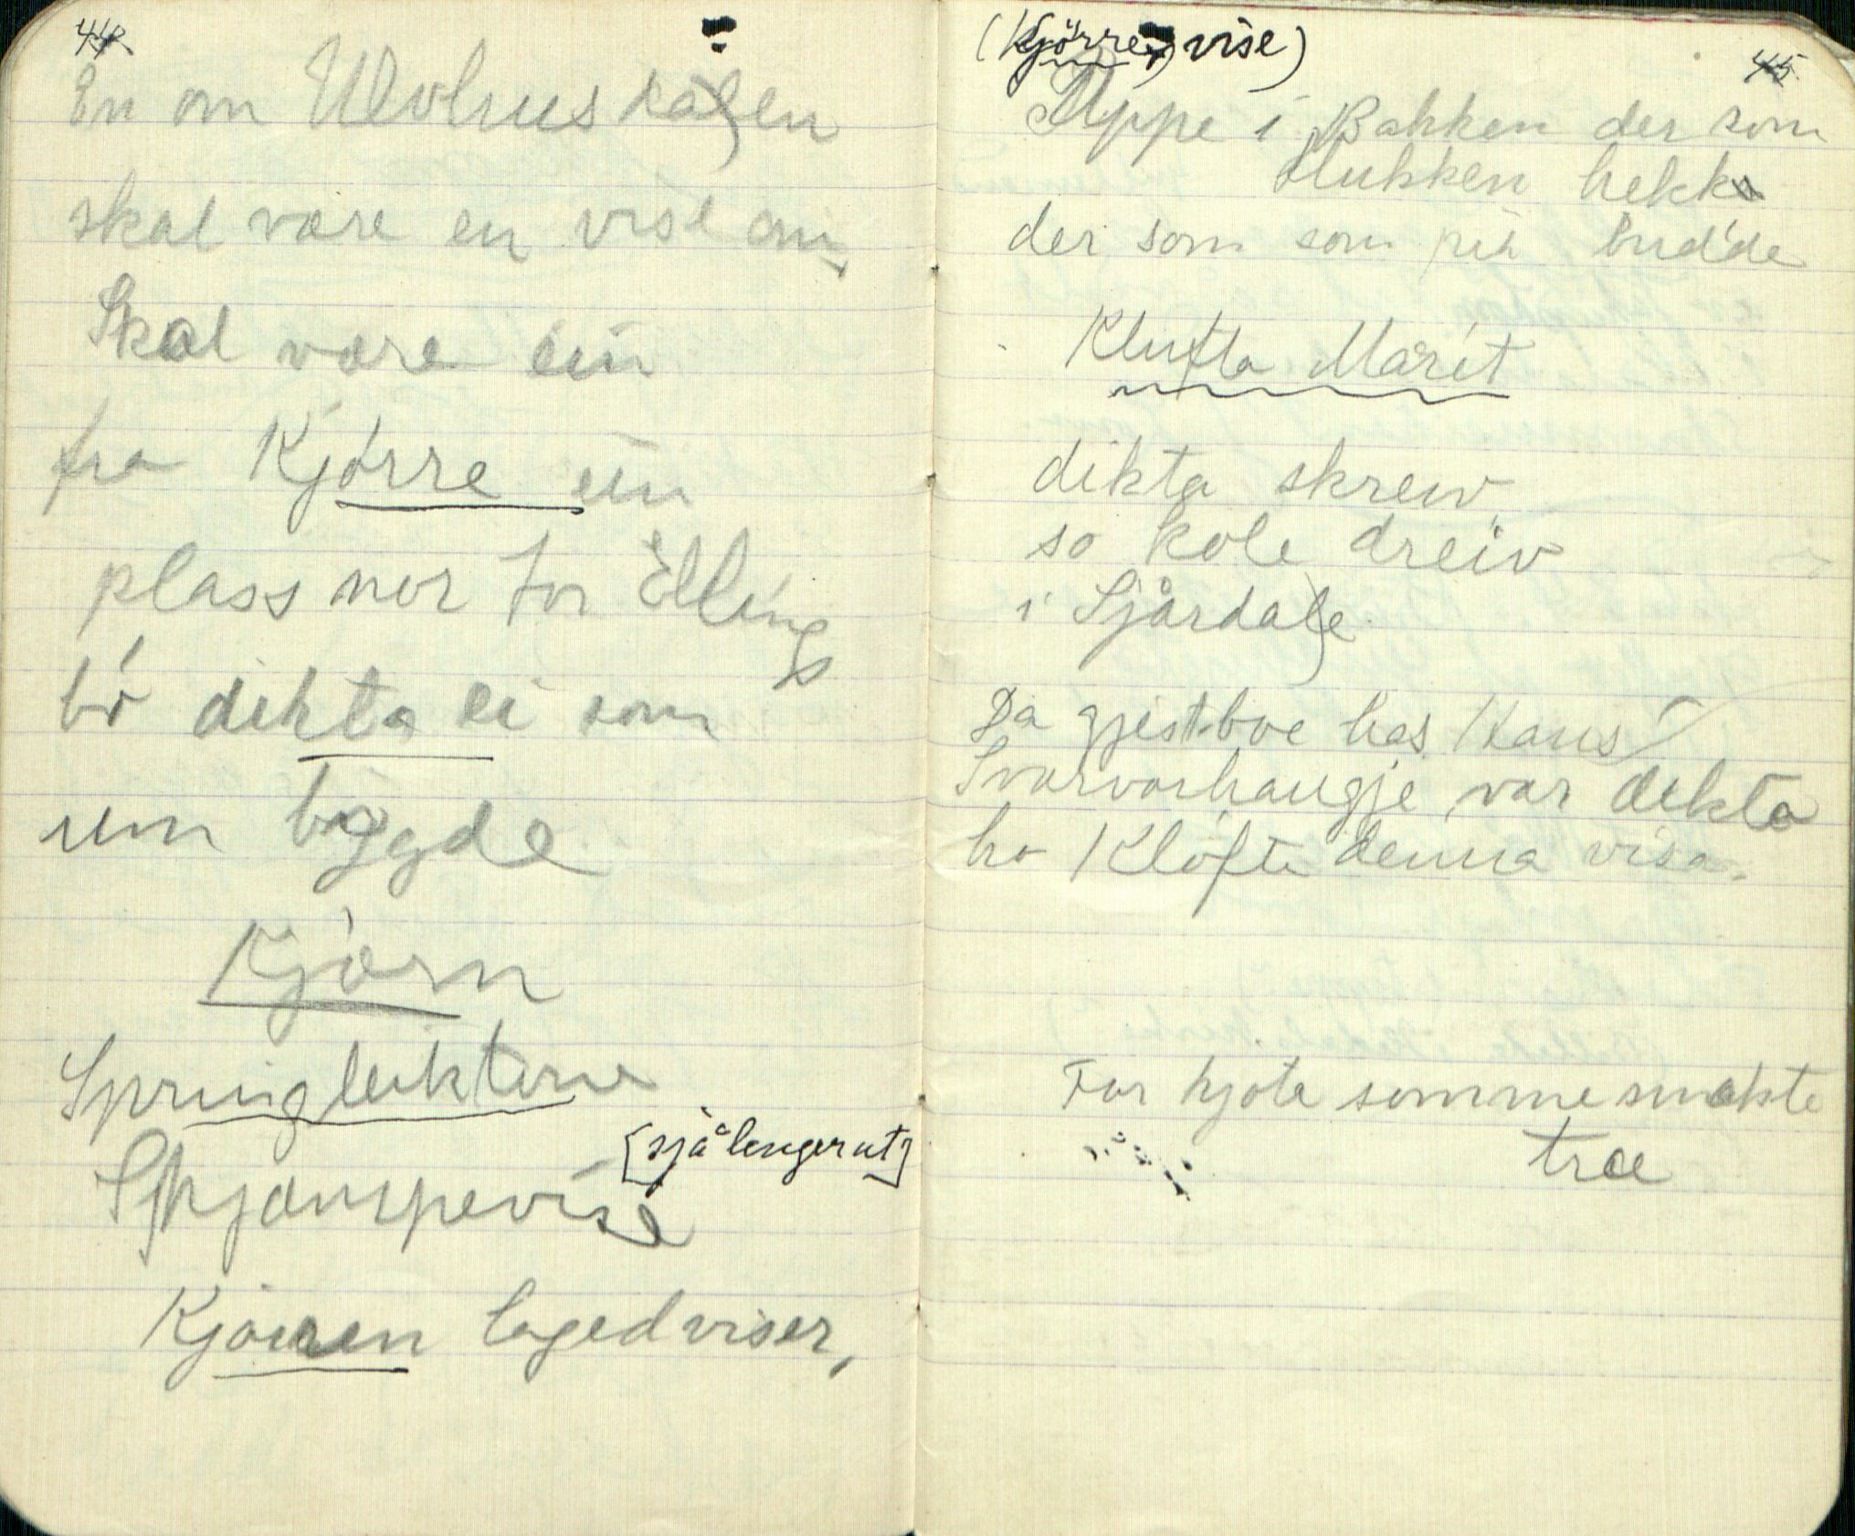 44
En om Ulvhuskallen
skal være en vise om,
Skal være ein
fra Kjørre ein
plass nor for Ellings
bø dikta ei som
um bygde
Kjørn
Springleiktone
[sjå lenger ut]
Skjæmpevise
Kjørren laged viser,
(Kjørre, vise)
45
Uppe i Bakken der som
Hukken hekk
der som som budde
Klufta Marit
dikta skreiv
so kole dreiv
i Sjårdale
Da gjestboe has Hans
Svarvarhaugje var dikta
ho Kløfte denna visa.
For kjøte somme smakte
træ